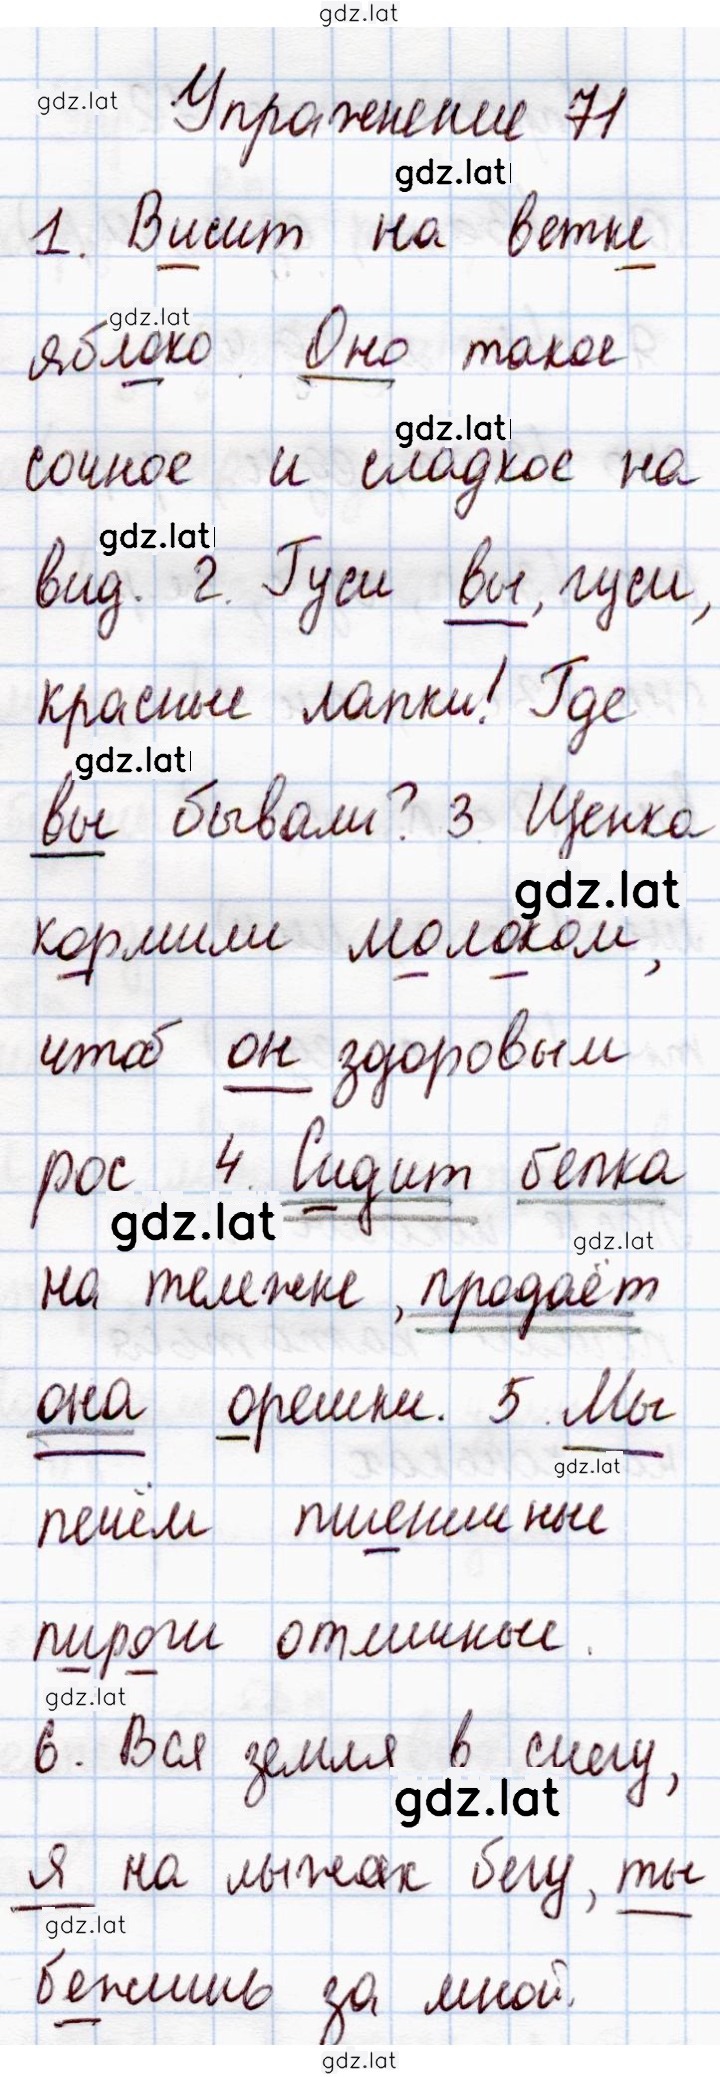 gdz.lat
gdz.lat
Упражнение 71
gdz.lat
1. Висит на ветке
gdz.lat
яблоко. Оно такое
gdz.lat
сочное и сладкое на
gdz.lat
вид. 2. Гуси вы, гуси,
красные лапки! Где
gdz.lat
вы бывали? 3. Щенка
gdz.lat
кормили молоком,
чтоб он здоровым
рос 4. Сидит белка
gdz.lat
gdz.lat
на тележке, продаёт
она орешки. 5. Мы
gdz.lat
печём пшеничные
пироги отличные.
gdz.lat
6. Вся земля в снегу,
gdz.lat
я на лыжах бегу, ты
gdz.lat
бежишь за мной.
gdz.lat